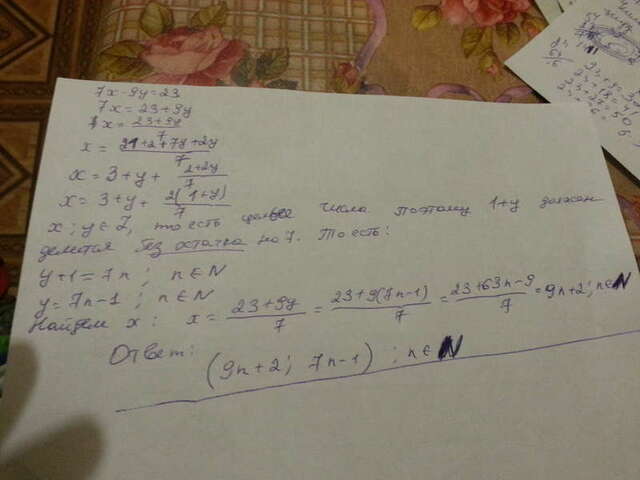 7x-9y=23
7x=23+9y
x=\frac{23+9y}{7}
x=\frac{21+2+7y+2y}{7}
x=3+y+\frac{2+2y}{7}
x=3+y+\frac{2(1+y)}{7}
x; y∈Z, то есть целые числа поэтому 1+y должен
делится без остатка на 7. То есть:
y+1=7n; n∈N
y=7n-1; n∈N
Найдем x: x=\frac{23+9y}{7}=\frac{23+9(7n-1)}{7}=\frac{23+63n-9}{7}=9n+2; n∈N
Ответ: (9n+2; 7n-1); n∈N
23+